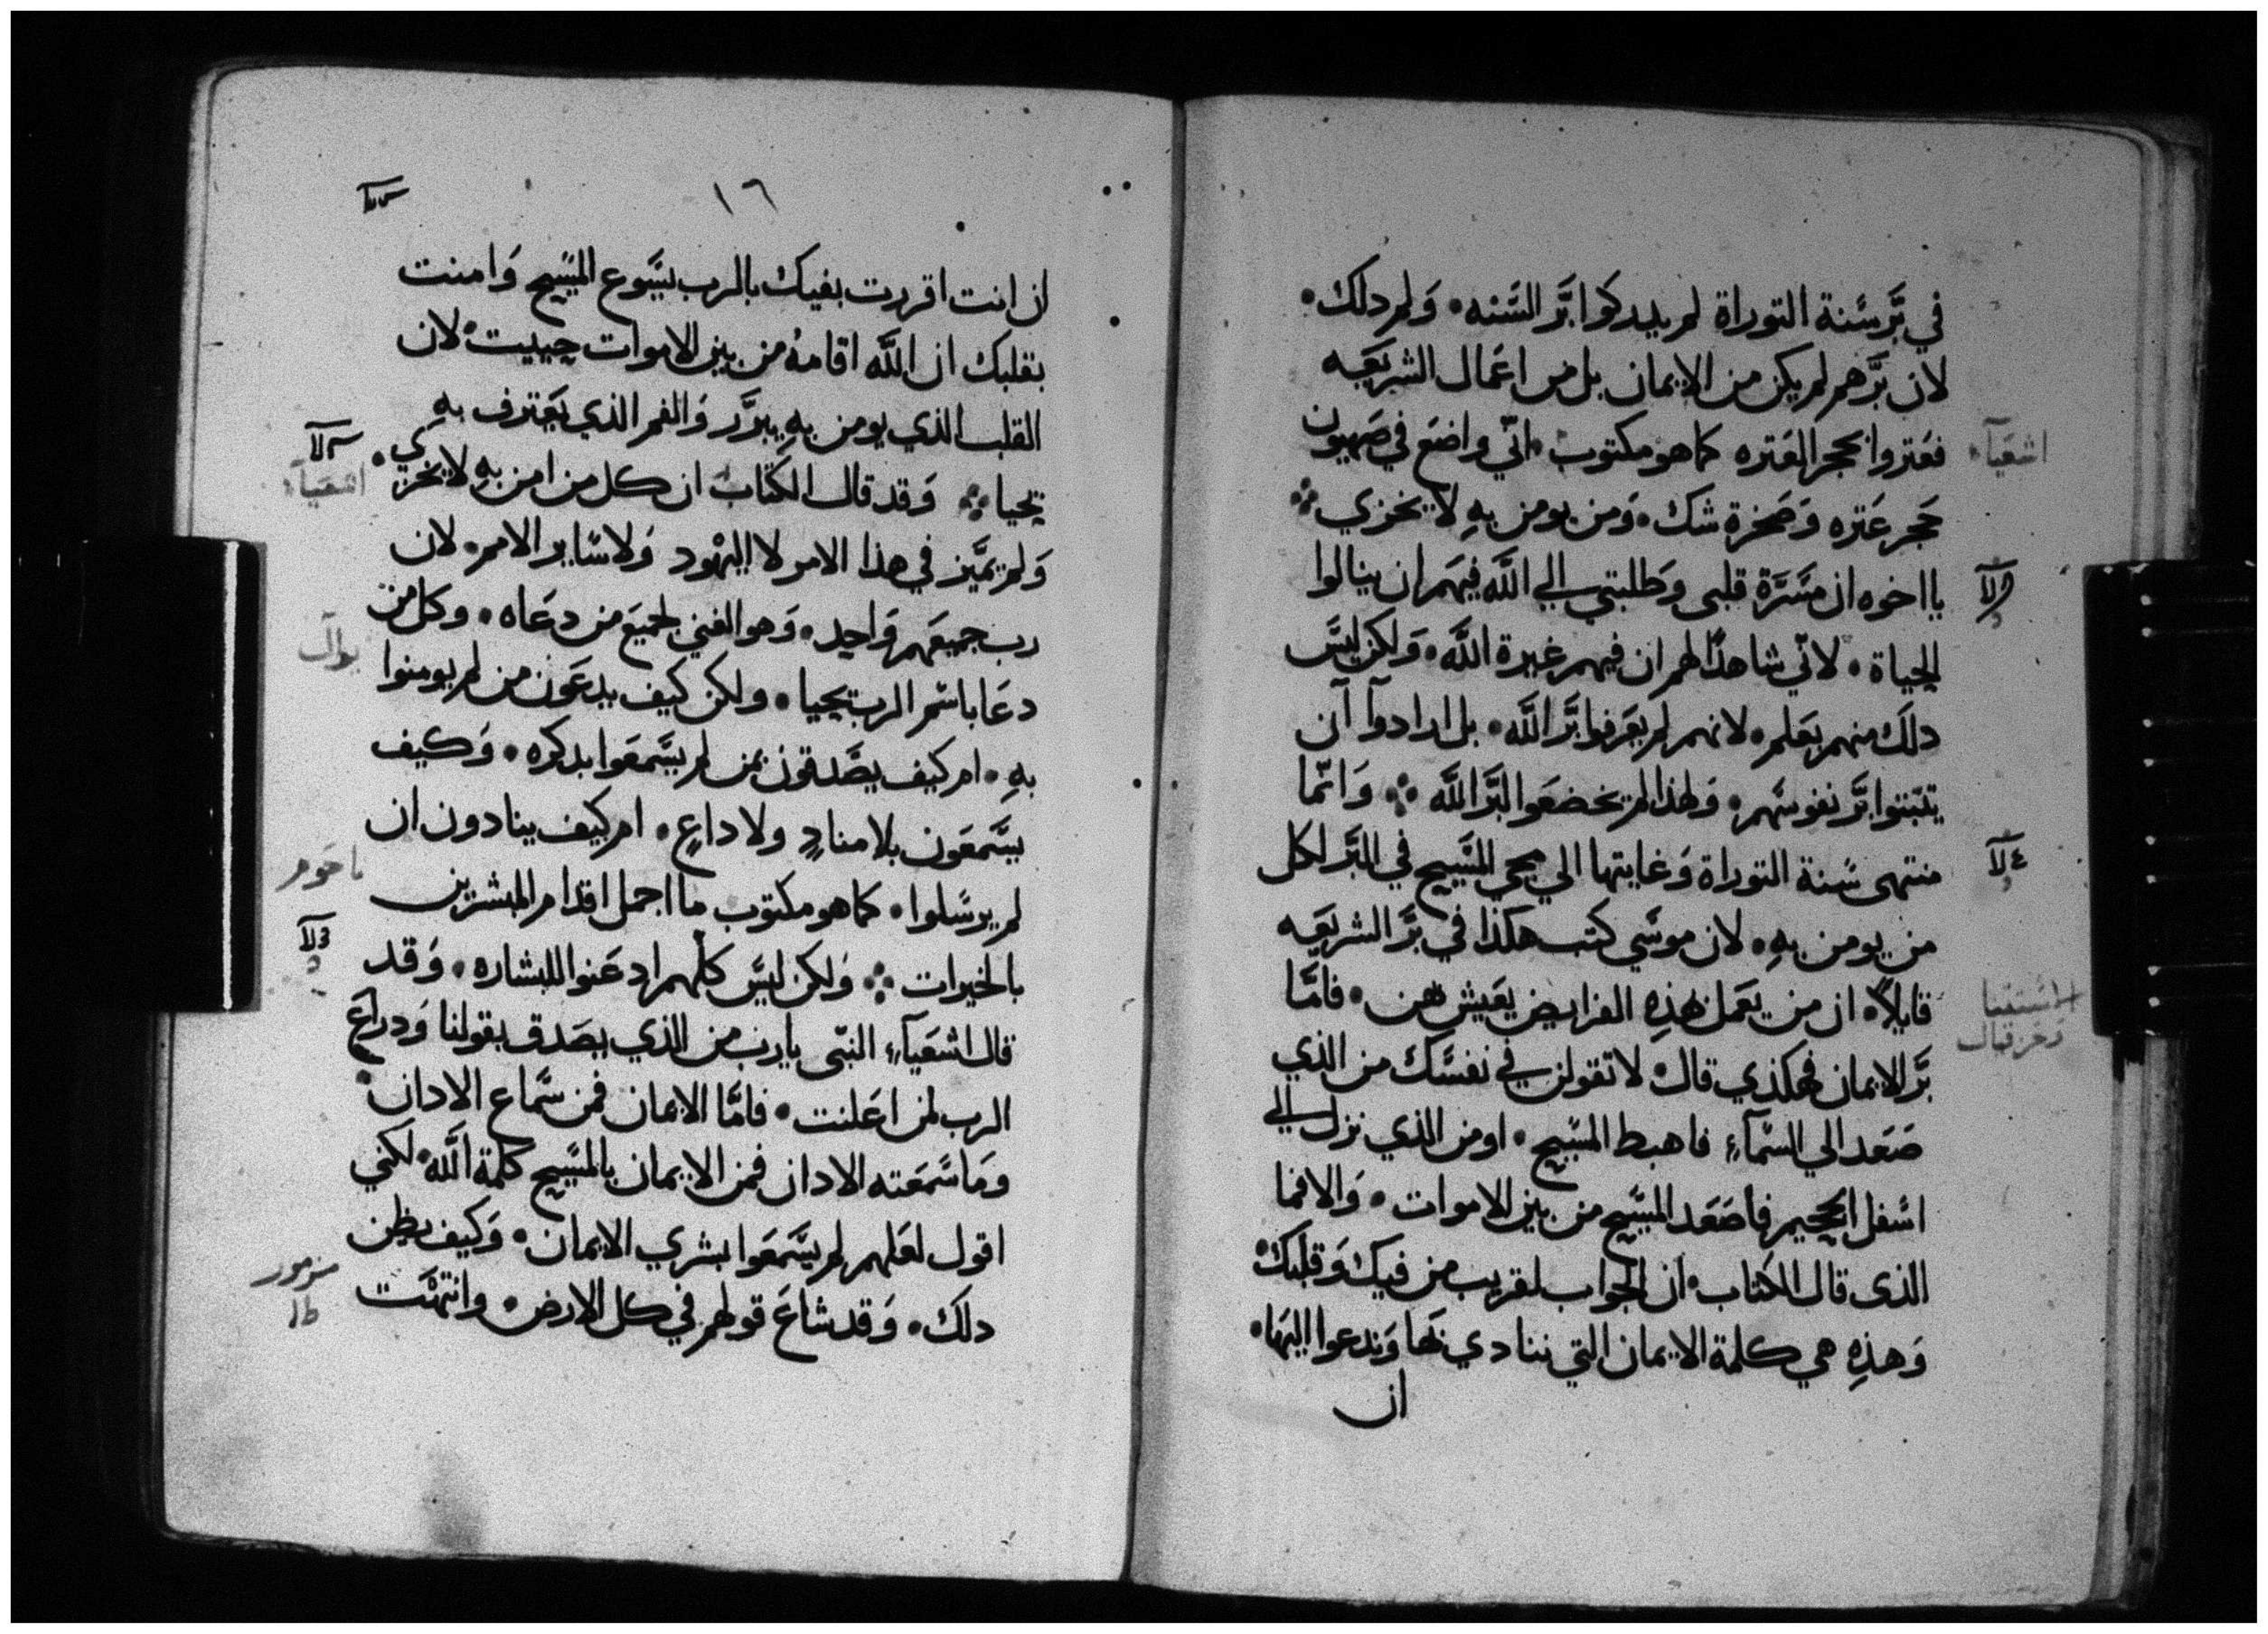 في بَّر سَّنة التوراة لم يدركوا بَّر السَّنه • وَلم دلك •
لان بَّرهم لم يكن من الايمان بل من اعَمال الشريعَه
فعَتروا بحجر العَتره كما هو مكتوب • انّي واضعَ في صَهيون
اشعَيآء
حَجر عَتره وَصَخرة شك • وَمن يومن بهِ لا يخزي ⁘
يا اخوه ان مسَّرَة قلبى وَطلبتي الي اللَّه فيهَم ان ينالوا
الحياة • لانّي شاهدًا لهم ان فيهم غيرة اللَّه • وَلكن ليسَّ
دلَك منهم بعَلم • لانهم لم يعَرفوا بَّر اللَّه • بل ارادوآ آن
يتبّتوا بَّر نفوسَهم • وَلهذا لم يخضعَوا لبَّر اللَّه ⁘ وَانّما
منتهى سَّنة التوراة وَغايتها الي مجي المسَّيح في البَّر لكل
٤
من يومن بهِ • لان موسَّي كتب هكذا في بَّر الشريعَه
قايلاً • ان من يعَمل هَذهِ الفرايض يعَيش بهن • فامَّا
اسَّتتنا
وحزقيال
بَّر الايمان فهكذي قال • لا تقولن في نفسَّك من الذي
صَعَد الي السَّمآءِ فاهبط المسَّيح • او من الذي نزل الي
اسَّفل الجحيم فاصَعَد المسَّيح من بين الاموات • وَالا فما
الذى قال الكتاب • ان الجواب لقريب من فيك وَقلبك •
وَهذهِ هي كلمة الايمان التي ننادي بَها وَندعوا اليهَا •
ان
١٦
ان انت اقررت بفيك بالرب يسَّوع المسَّيح وَامنت
بقلبك ان اللَّه اقامهُ من بين الاموات حييت • لان
القلب الذي يومن بهِ يبرَّر وَالفم الذي يعَترف بهِ
يحيا ⁘ وَقد قال الكتاب ان كل من امن بهِ لا يخزي •
اشعَيآء
وَلم يميَّز في هذا الامر لا اليهَود وَلا سَّاير الامم • لان
رب جميعَهم وَاحِد • وَهو الغني لجميعَ من دعَاه • وكل من
يوآل
دعَا باسَّم الرب يحيا • ولكن كيف يدعَون من لم يومنوا
بهِ • ام كيف يصَّدقون بمن لم يسَّمعَوا بدكره • وَكيف
يسَّمعَون بلا منادٍ ولا داعٍ • ام كيف ينادون ان
ناحَوم
لم يرسَّلوا • كما هو مكتوب ما اجمل اقدام المبشرين
بالخيرات ⁘ وَلكن ليسَّ كلهم ادعَنوا للبشاره • وَقد
قال اشعَيآءِ النبّى يا رب من الذي يصَدق بقولنا وَدراعَ
الرب لمن اعَلنت • فامَّا الايمان فمن سَّماع الادان •
وَما سَّمعَته الادان فمن الايمان بالمسَّيح كلمة اللَّه • لكني
اقول لعَلهم لم يسَّمعَوا بشري الايمان • وَكيف يظن
مزمور
دلك • وَقد شاعَ قولهم في كل الارض • وانتهَت